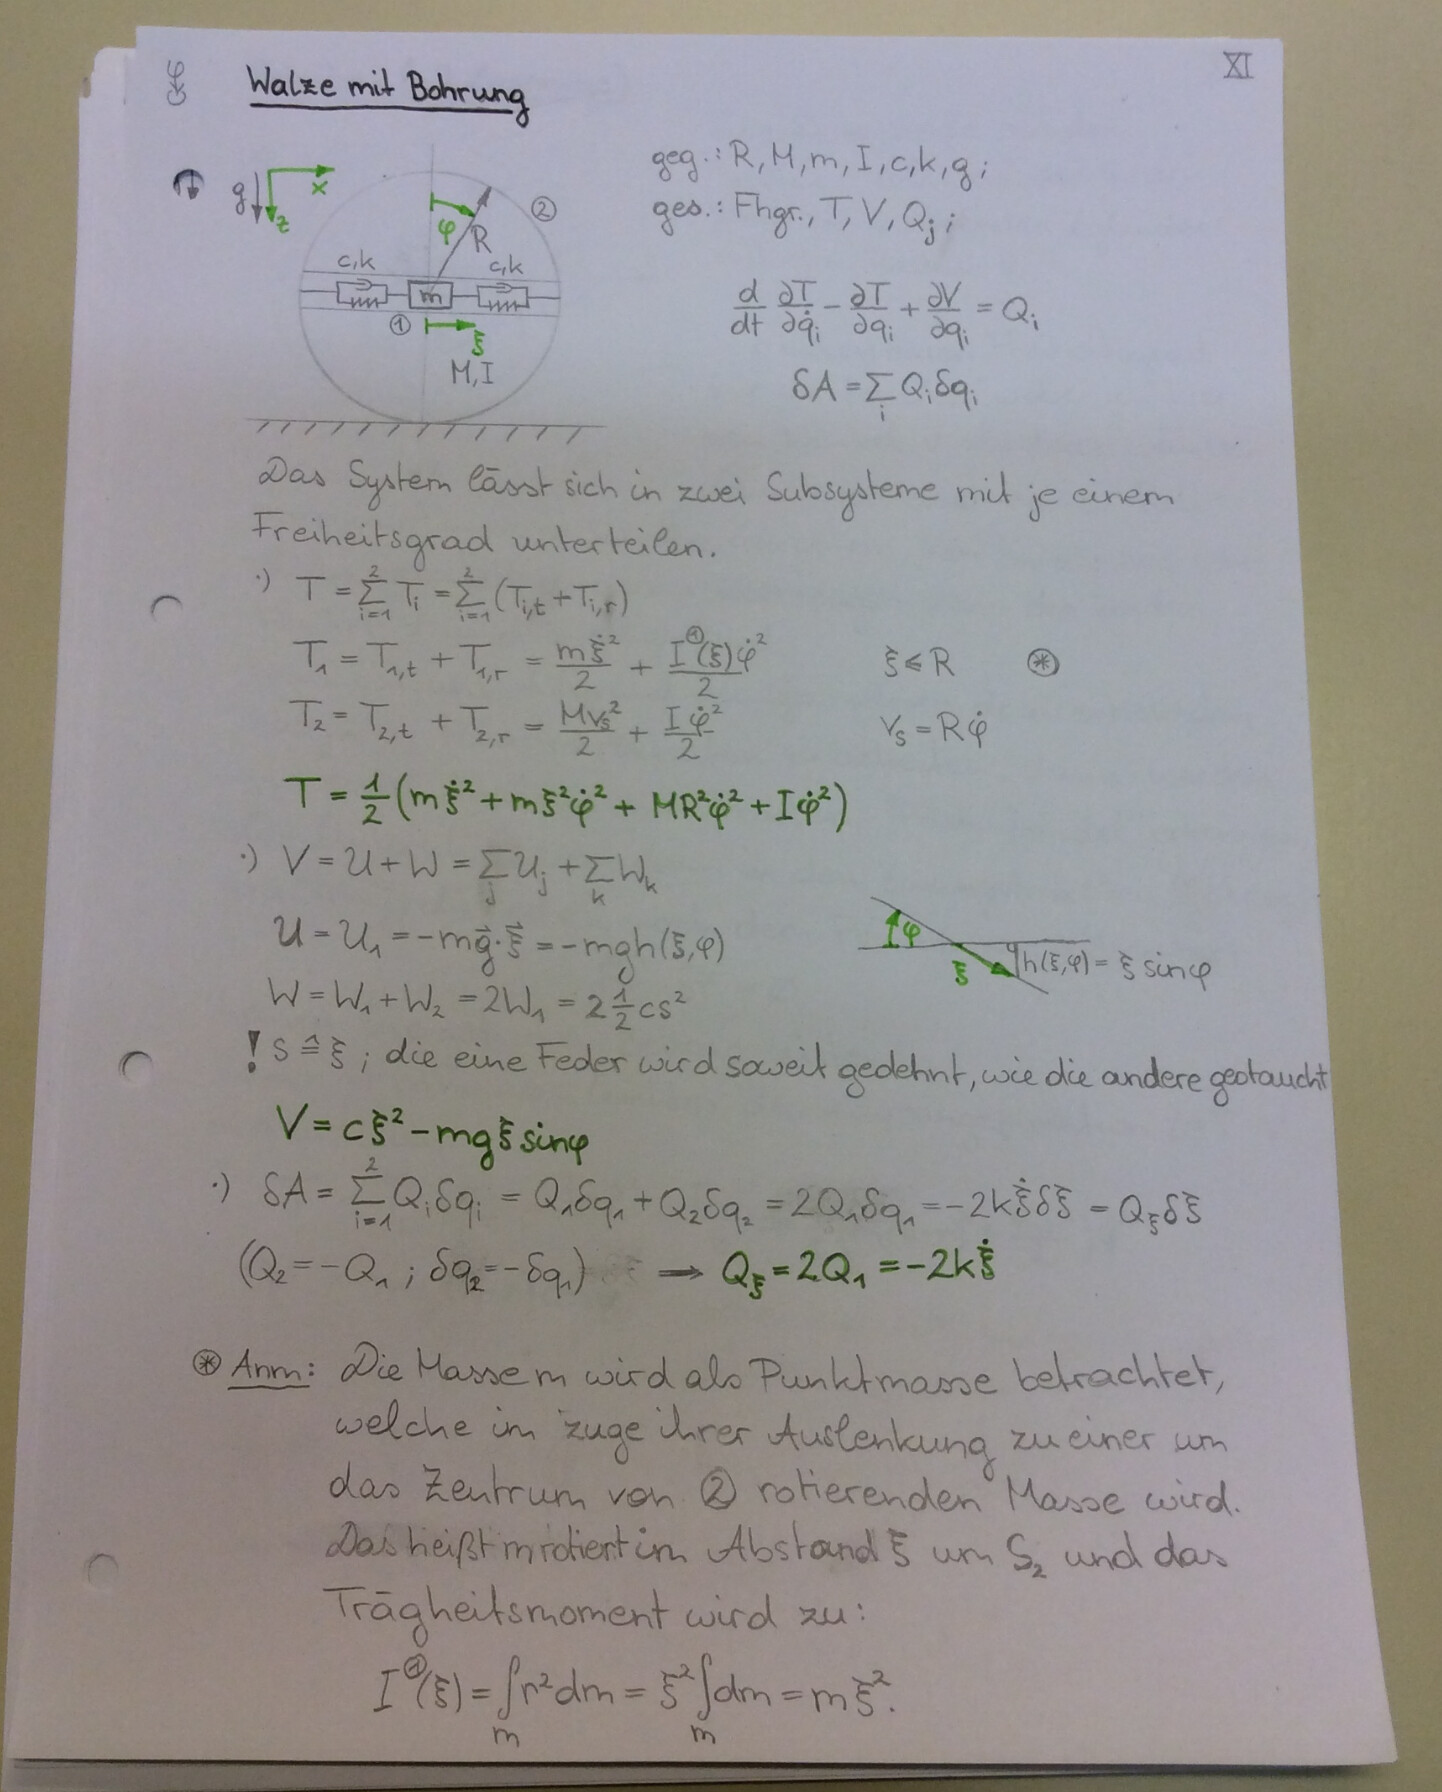 XI
Walze mit Bohrung
g x z
φ R ②
c,k c,k
m
① ξ
M, I
geg.: R, M, m, I, c, k, g;
ges.: Fhgr., T, V, Qj;
d/dt ∂T/∂q̇i − ∂T/∂qi + ∂V/∂qi = Qi
δA = Σi Qi δqi
Das System lässt sich in zwei Subsysteme mit je einem
Freiheitsgrad unterteilen.
·) T = Σ_{i=1}^{2} Ti = Σ_{i=1}^{2} (Ti,t + Ti,r)
T1 = T1,t + T1,r = mξ̇²/2 + I^①(ξ)φ̇²/2 ξ ≤ R ⊛
T2 = T2,t + T2,r = Mvs²/2 + Iφ̇²/2 vs = Rφ̇
T = 1/2 (mξ̇² + mξ²φ̇² + MR²φ̇² + Iφ̇²)
·) V = U + W = Σj Uj + Σk Wk
U = U1 = −mg⃗·ξ⃗ = −mgh(ξ,φ)
φ ξ h(ξ,φ) = ξ sinφ
W = W1 + W2 = 2W1 = 2 1/2 cs²
! s ≙ ξ ; die eine Feder wird soweit gedehnt, wie die andere gestaucht
V = cξ² − mgξ sinφ
·) δA = Σ_{i=1}^{2} Qi δqi = Q1δq1 + Q2δq2 = 2Q1δq1 = −2kξ̇δξ = Qξδξ
(Q2 = −Q1 ; δq2 = −δq1) → Qξ = 2Q1 = −2kξ̇
⊛ Anm: Die Masse m wird als Punktmasse betrachtet,
welche im zuge ihrer Auslenkung zu einer um
das Zentrum von ② rotierenden Masse wird.
Das heißt m rotiert im Abstand ξ um S2 und das
Trägheitsmoment wird zu:
I^①(ξ) = ∫m r²dm = ξ² ∫m dm = mξ².